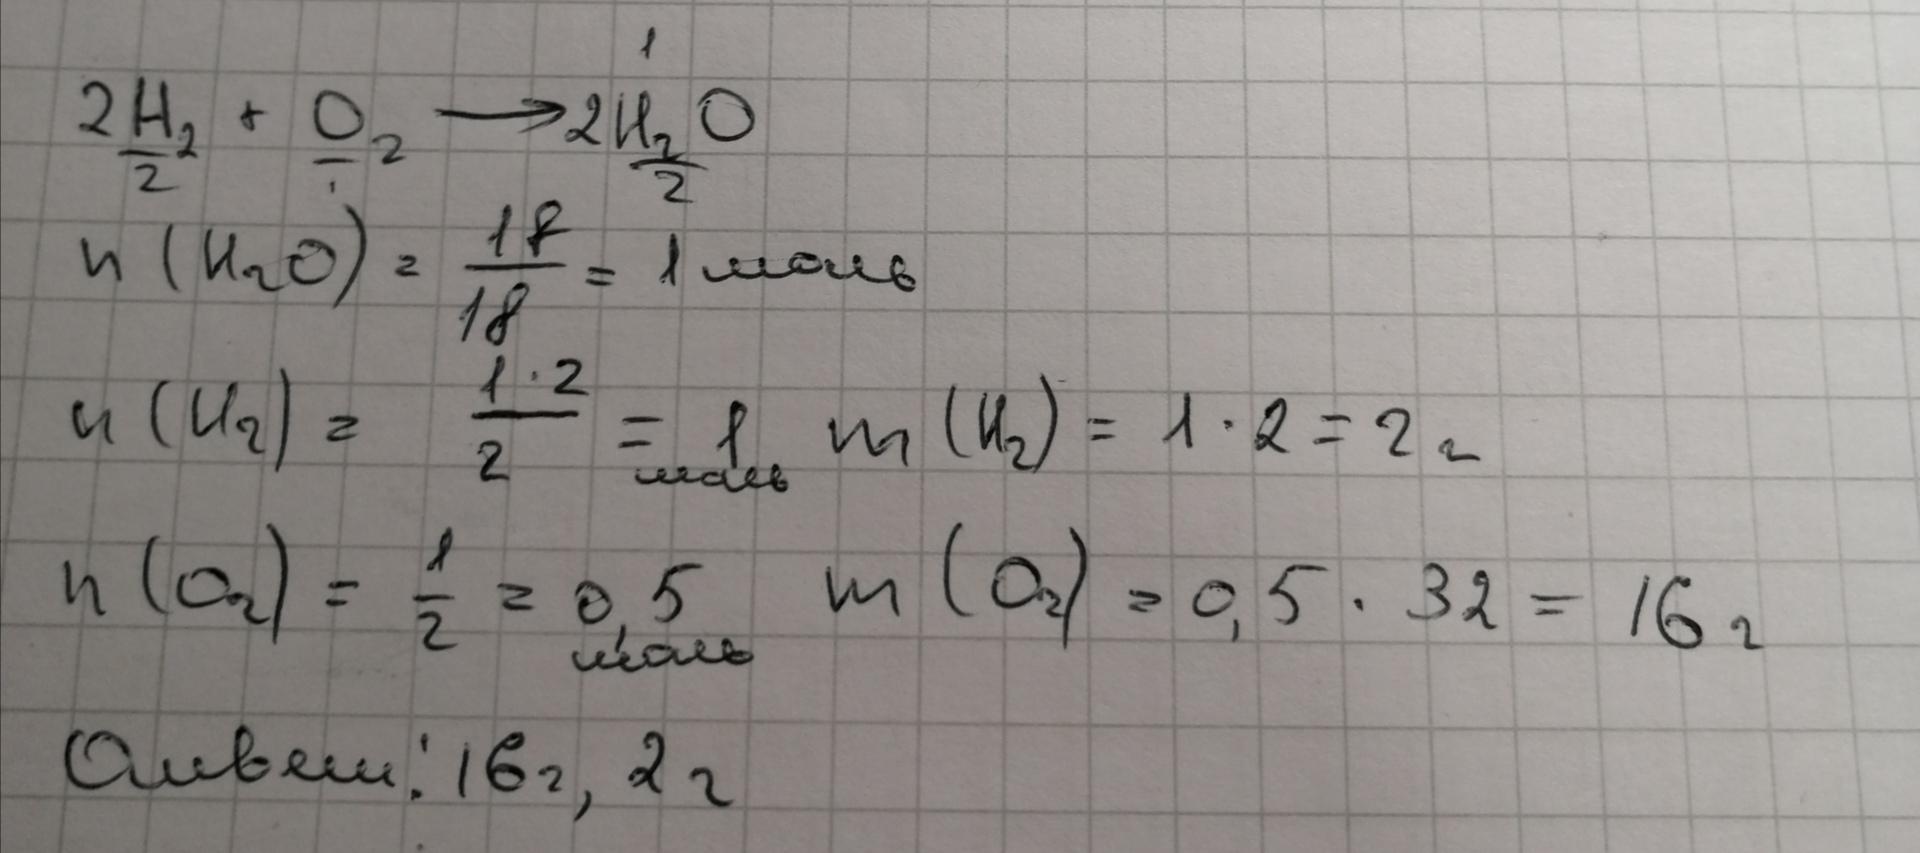 1
2H₂ + O₂ → 2H₂O
2 1 2
n (H₂O) = 18/18 = 1 моль
n (H₂) = 1·2/2 = 1 моль m (H₂) = 1·2 = 2 г
n (O₂) = 1/2 = 0,5 моль m (O₂) = 0,5 · 32 = 16 г
Ответ: 16 г, 2 г